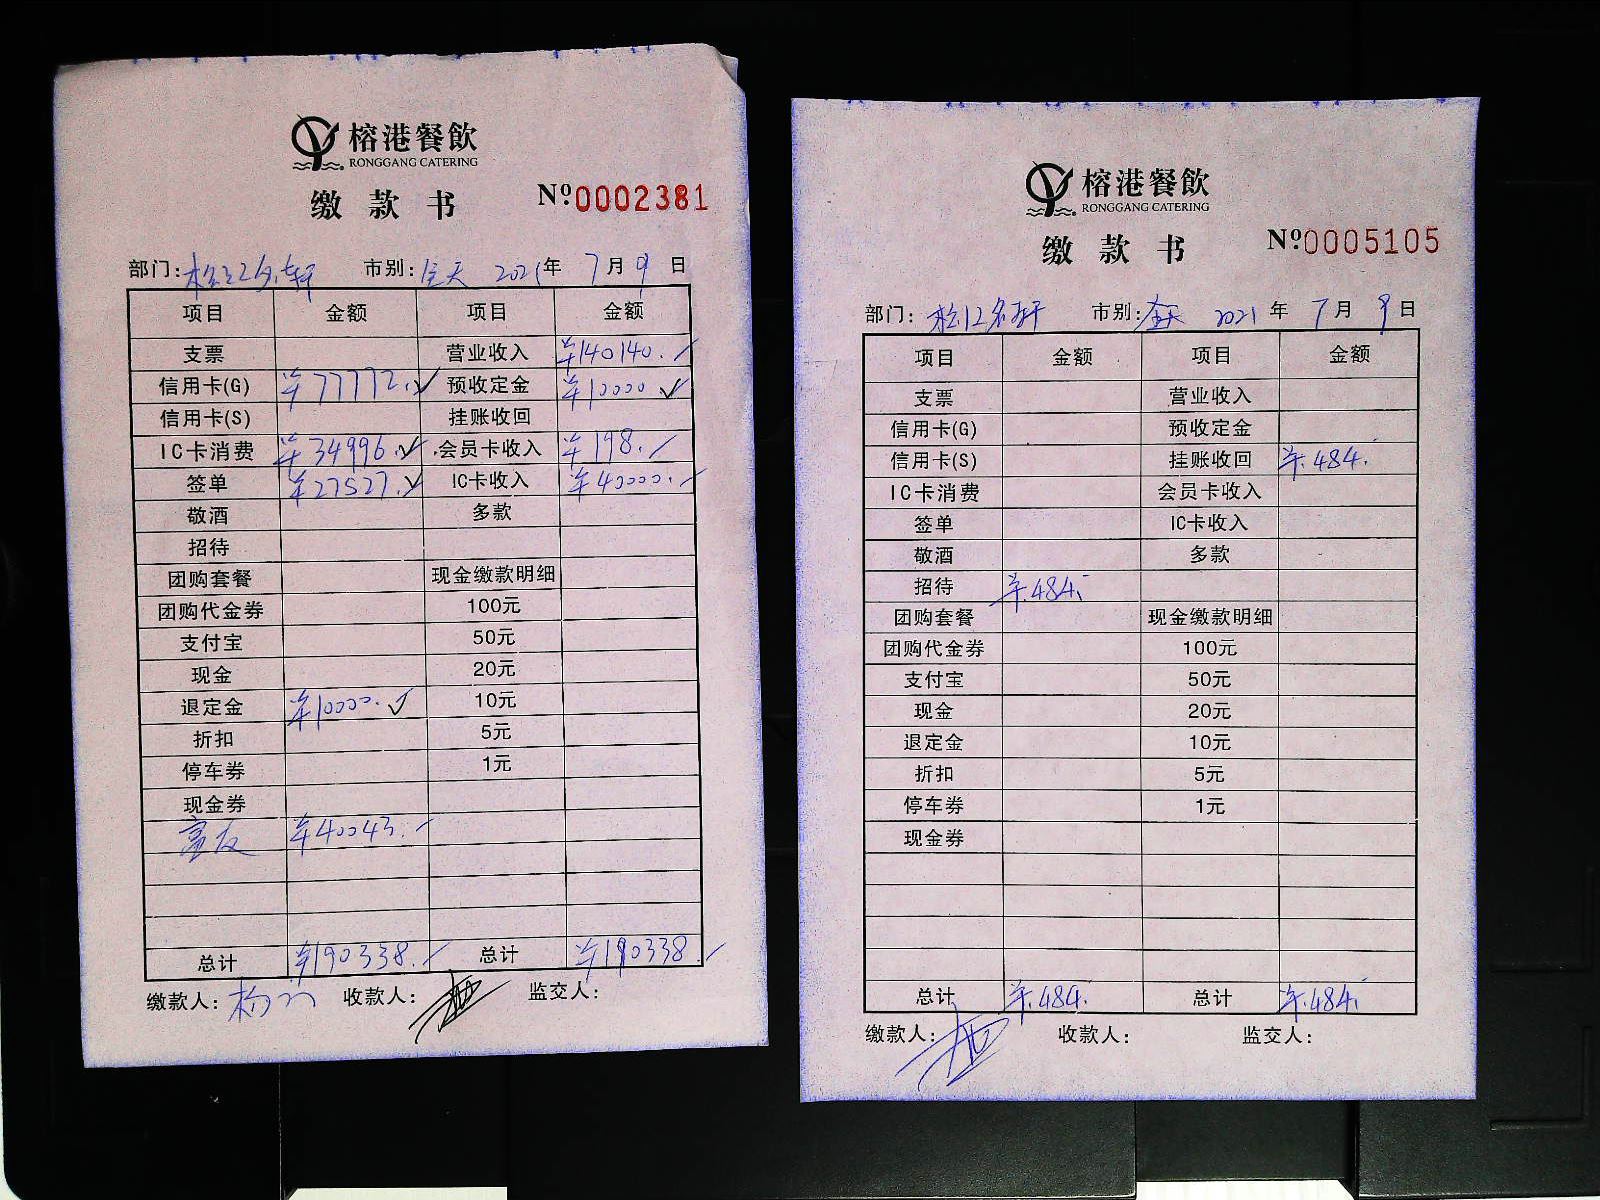 榕港餐飲
RONGGANG CATERING
缴款书 Nº0002381
部门: 松江名轩 市别: 全天 2021年 7月 9日
项目 金额 项目 金额
支票 营业收入 ¥140140.
信用卡(G) ¥77772. 预收定金 ¥10000
信用卡(S) 挂账收回
IC卡消费 ¥34996. 会员卡收入 ¥198.
签单 ¥27527. IC卡收入 ¥40000.
敬酒 多款
招待
团购套餐 现金缴款明细
团购代金券 100元
支付宝 50元
现金 20元
退定金 ¥10000. 10元
折扣 5元
停车券 1元
现金券
¥40043.
总计 ¥190338. 总计 ¥190338.
缴款人: 收款人: 监交人:
榕港餐飲
RONGGANG CATERING
缴款书 Nº0005105
部门: 松江名轩 市别: 全天 2021年 7月 9日
项目 金额 项目 金额
支票 营业收入
信用卡(G) 预收定金
信用卡(S) 挂账收回 ¥.484.
IC卡消费 会员卡收入
签单 IC卡收入
敬酒 多款
招待 ¥.484.
团购套餐 现金缴款明细
团购代金券 100元
支付宝 50元
现金 20元
退定金 10元
折扣 5元
停车券 1元
现金券
总计 ¥.484. 总计 ¥.484.
缴款人: 收款人: 监交人: